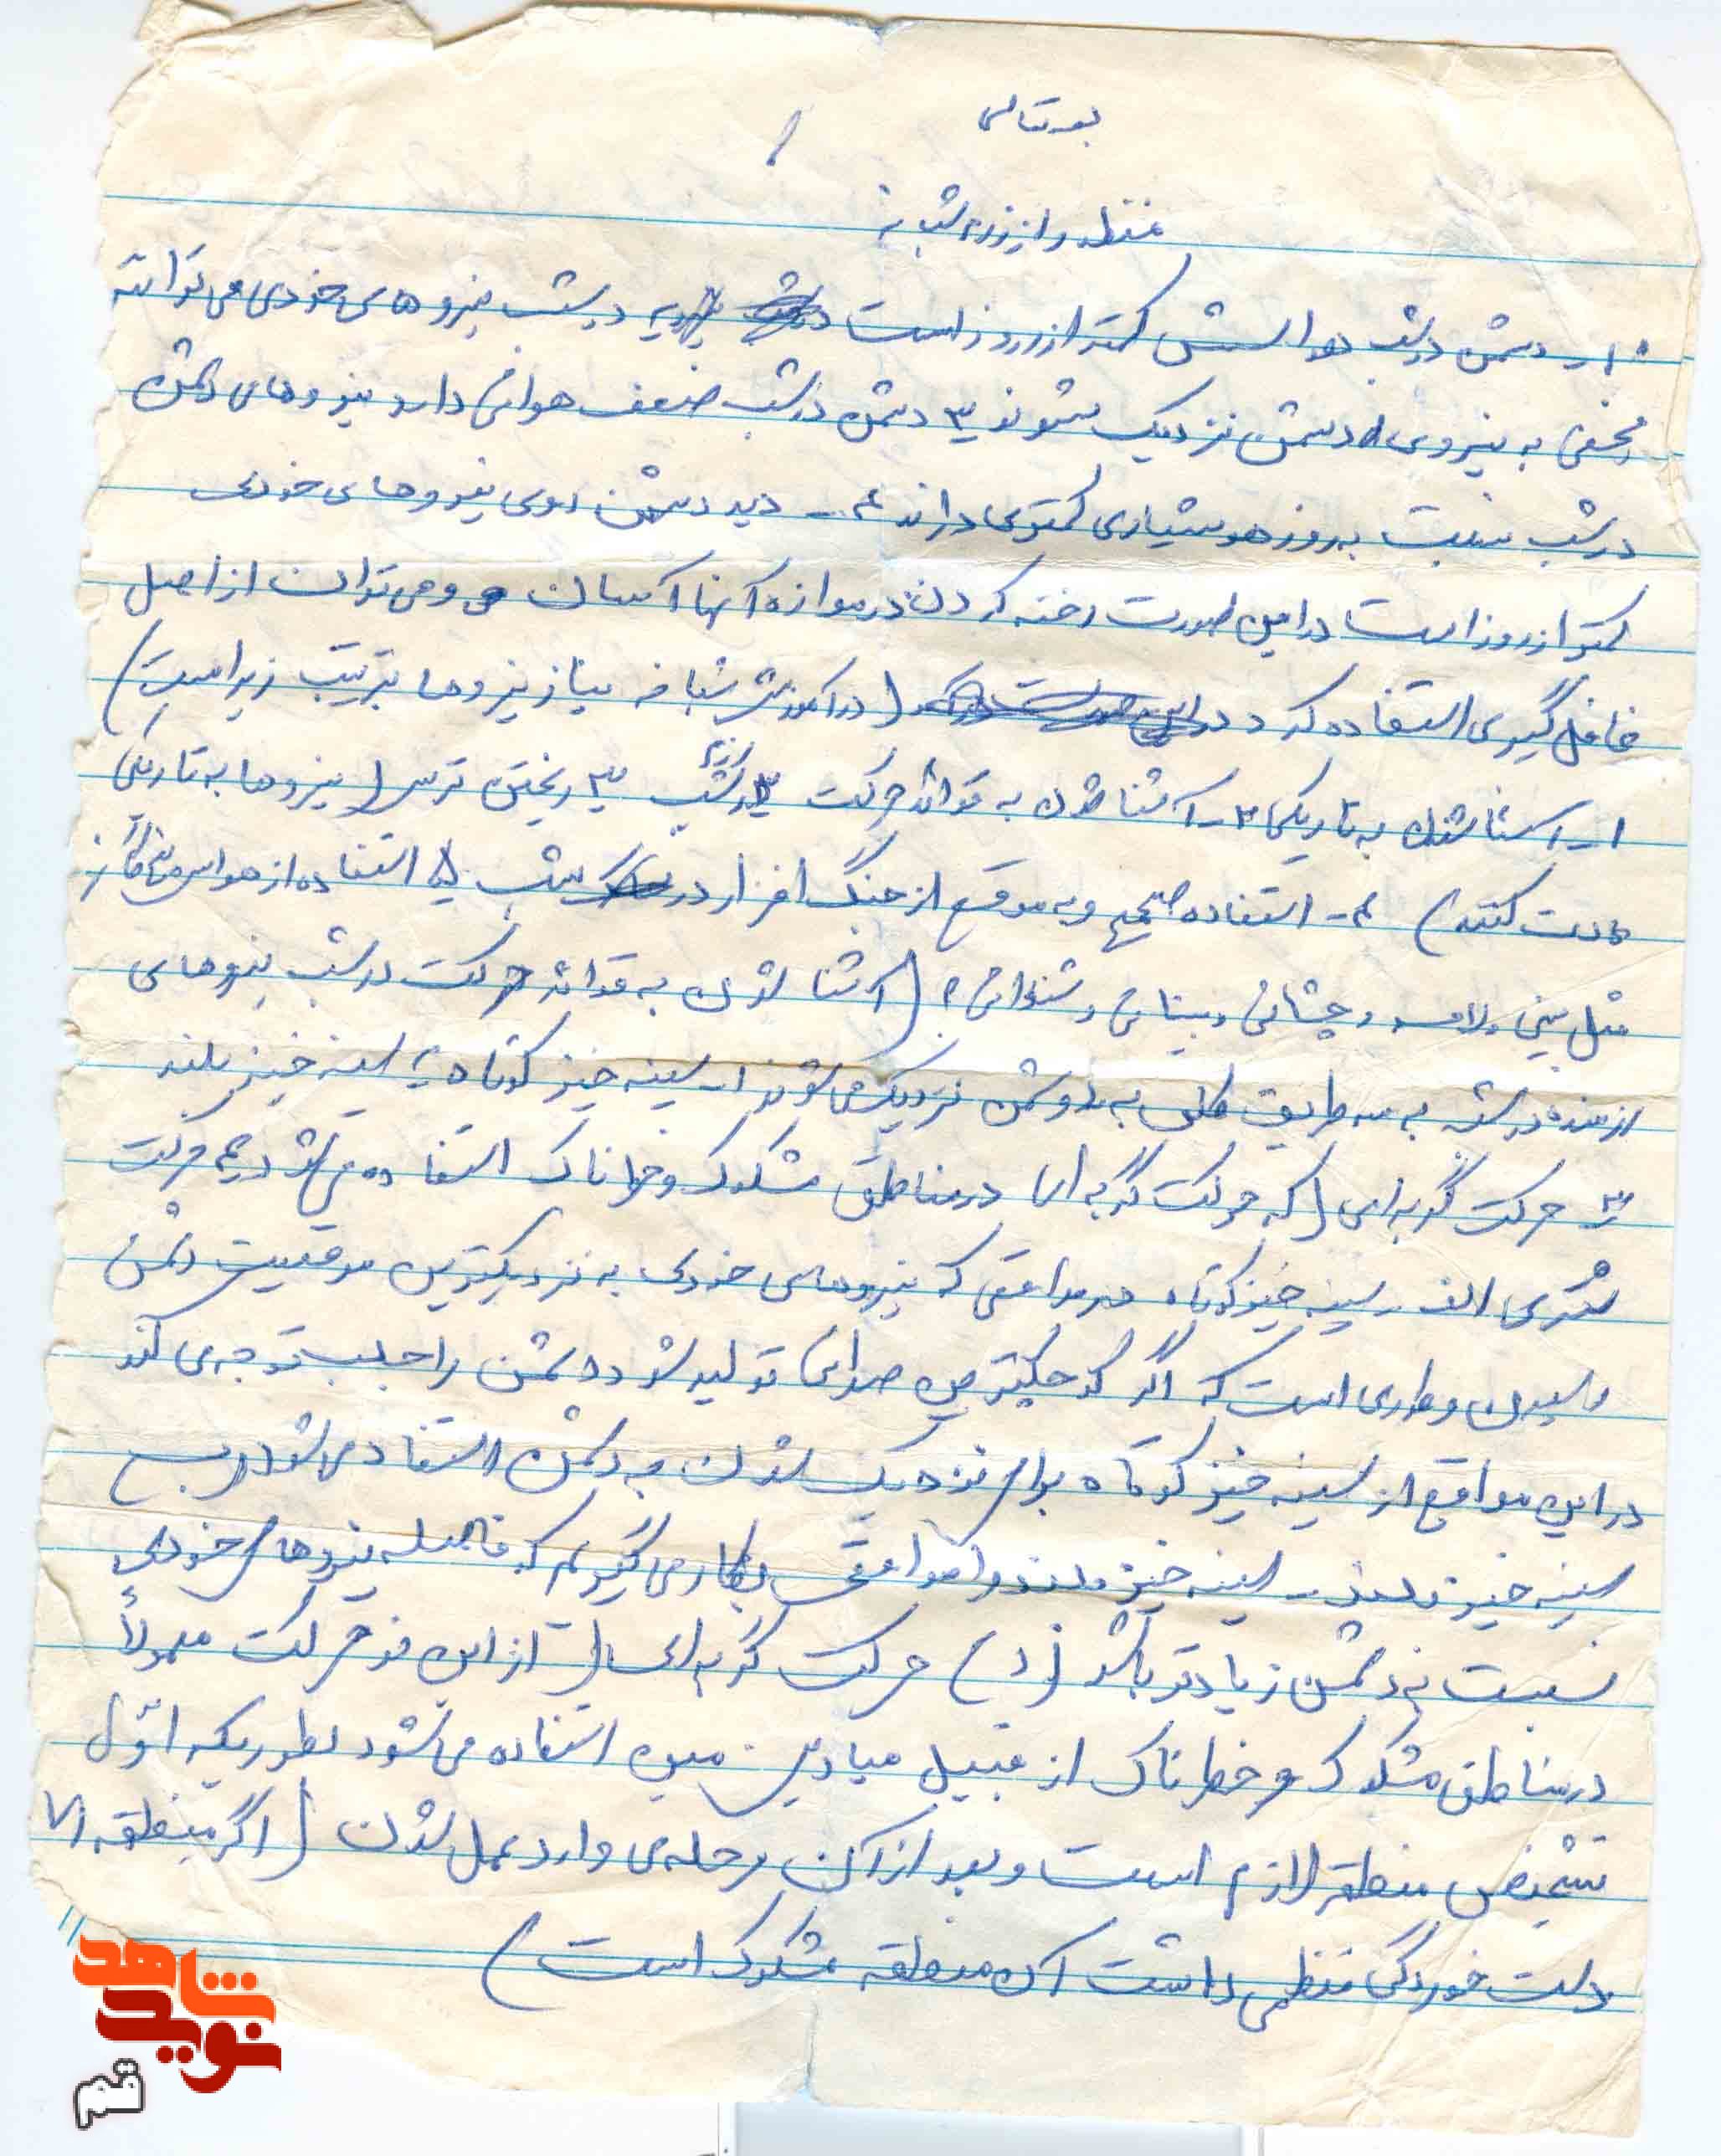 بسمه تعالی
منظور از رزم شبانه
۱- دشمن در شب حواسش کمتر از روز است ۲- در شب نیروهای خودی می توانند
مخفی به نیروی دشمن نزدیک شوند ۳- دشمن در شب ضعف هوائی دارد نیروهای دشمن
در شب نسبت به روز هوشیاری کمتری دارند ۴- دید دشمن روی نیروهای خودی
کمتر از روز است در این صورت رخنه کردن در مواضع آنها آسان و می توان از اصل
غافل گیری استفاده کرد (در آموزش شبانه نیاز نیروها بترتیب زیر است)
۱- آشنا شدن به تاریکی ۲- آشنا شدن به قوائد حرکت در شب ۳- ریختن ترس (نیروها به تاریکی
عادت کنند) ۴- استفاده صحیح و به موقع از جنگ افزار در شب ۵- استفاده از حواس
مثل بینی ولامسه و چشائی و بینائی و شنوائی (آشنا شدن به قوائد حرکت در شب نیروهای
رزمنده در شب به سه طریق به دشمن نزدیک می شوند ۱- سینه خیز کوتاه ۲- سینه خیز بلند
۳- حرکت گربه ای (که حرکت گربه ای در مناطق مشکوک و خطرناک استفاده می شود حرکت
الف- سینه خیز کوتاه در مواقعی که نیروهای خودی به نزدیکترین موقعیت دشمن
رسیدن و طوری است که اگر کوچکترین صدائی تولید شود دشمن را جلب توجه می کند
در این مواقع از سینه خیز کوتاه برای نزدیک شدن به دشمن استفاده می شود (ب
سینه خیز بلند- سینه خیز بلند را مواقعی بکار می گیریم که فاصله نیروهای خودی
نسبت به دشمن زیادتر باشد () حرکت گربه ای از این نوع حرکت معمولاً
در مناطق مشکوک و خطرناک از قبیل میادین مین استفاده می شود بطوریکه اول
تشخیص منطقه لازم است و بعد از آن مرحله ی وارد عمل شدن (اگر منطقه ای
دست خوردگی منظمی داشت آن منطقه مشکوک است)
نوید شاهد
قم